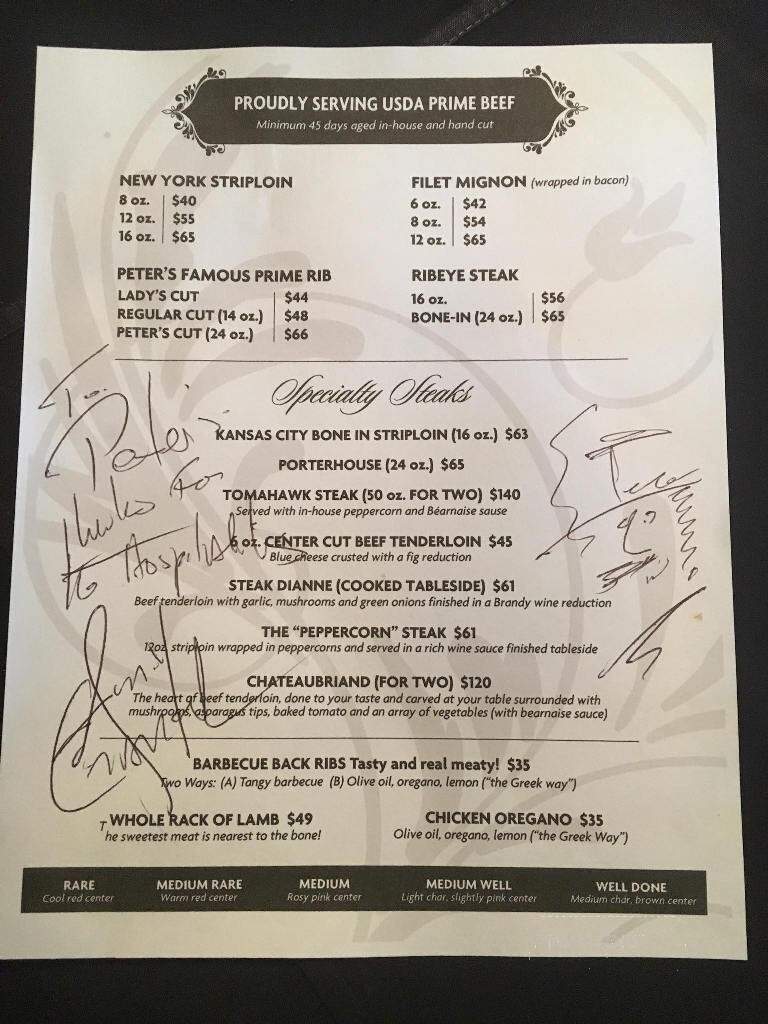 PROUDLY SERVING USDA PRIME BEEF
Minimum 45 days aged in-house and hand cut
NEW YORK STRIPLOIN
8 oz. $40
12 oz. $55
16 oz. $65
FILET MIGNON (wrapped in bacon)
6 oz. $42
8 oz. $54
12 oz. $65
PETER'S FAMOUS PRIME RIB
LADY'S CUT $44
REGULAR CUT (14 oz.) $48
PETER'S CUT (24 oz.) $66
RIBEYE STEAK
16 oz. $56
BONE-IN (24 oz.) $65
Specialty Steaks
KANSAS CITY BONE IN STRIPLOIN (16 oz.) $63
PORTERHOUSE (24 oz.) $65
TOMAHAWK STEAK (50 oz. FOR TWO) $140
Served with in-house peppercorn and Béarnaise sause
6 oz. CENTER CUT BEEF TENDERLOIN $45
Blue cheese crusted with a fig reduction
STEAK DIANNE (COOKED TABLESIDE) $61
Beef tenderloin with garlic, mushrooms and green onions finished in a Brandy wine reduction
THE "PEPPERCORN" STEAK $61
12oz striploin wrapped in peppercorns and served in a rich wine sauce finished tableside
CHATEAUBRIAND (FOR TWO) $120
The heart of beef tenderloin, done to your taste and carved at your table surrounded with
mushrooms, asparagus tips, baked tomato and an array of vegetables (with bearnaise sauce)
BARBECUE BACK RIBS Tasty and real meaty! $35
Two Ways: (A) Tangy barbecue (B) Olive oil, oregano, lemon ("the Greek way")
WHOLE RACK OF LAMB $49
The sweetest meat is nearest to the bone!
CHICKEN OREGANO $35
Olive oil, oregano, lemon ("the Greek Way")
RARE
Cool red center
MEDIUM RARE
Warm red center
MEDIUM
Rosy pink center
MEDIUM WELL
Light char, slightly pink center
WELL DONE
Medium char, brown center
To.